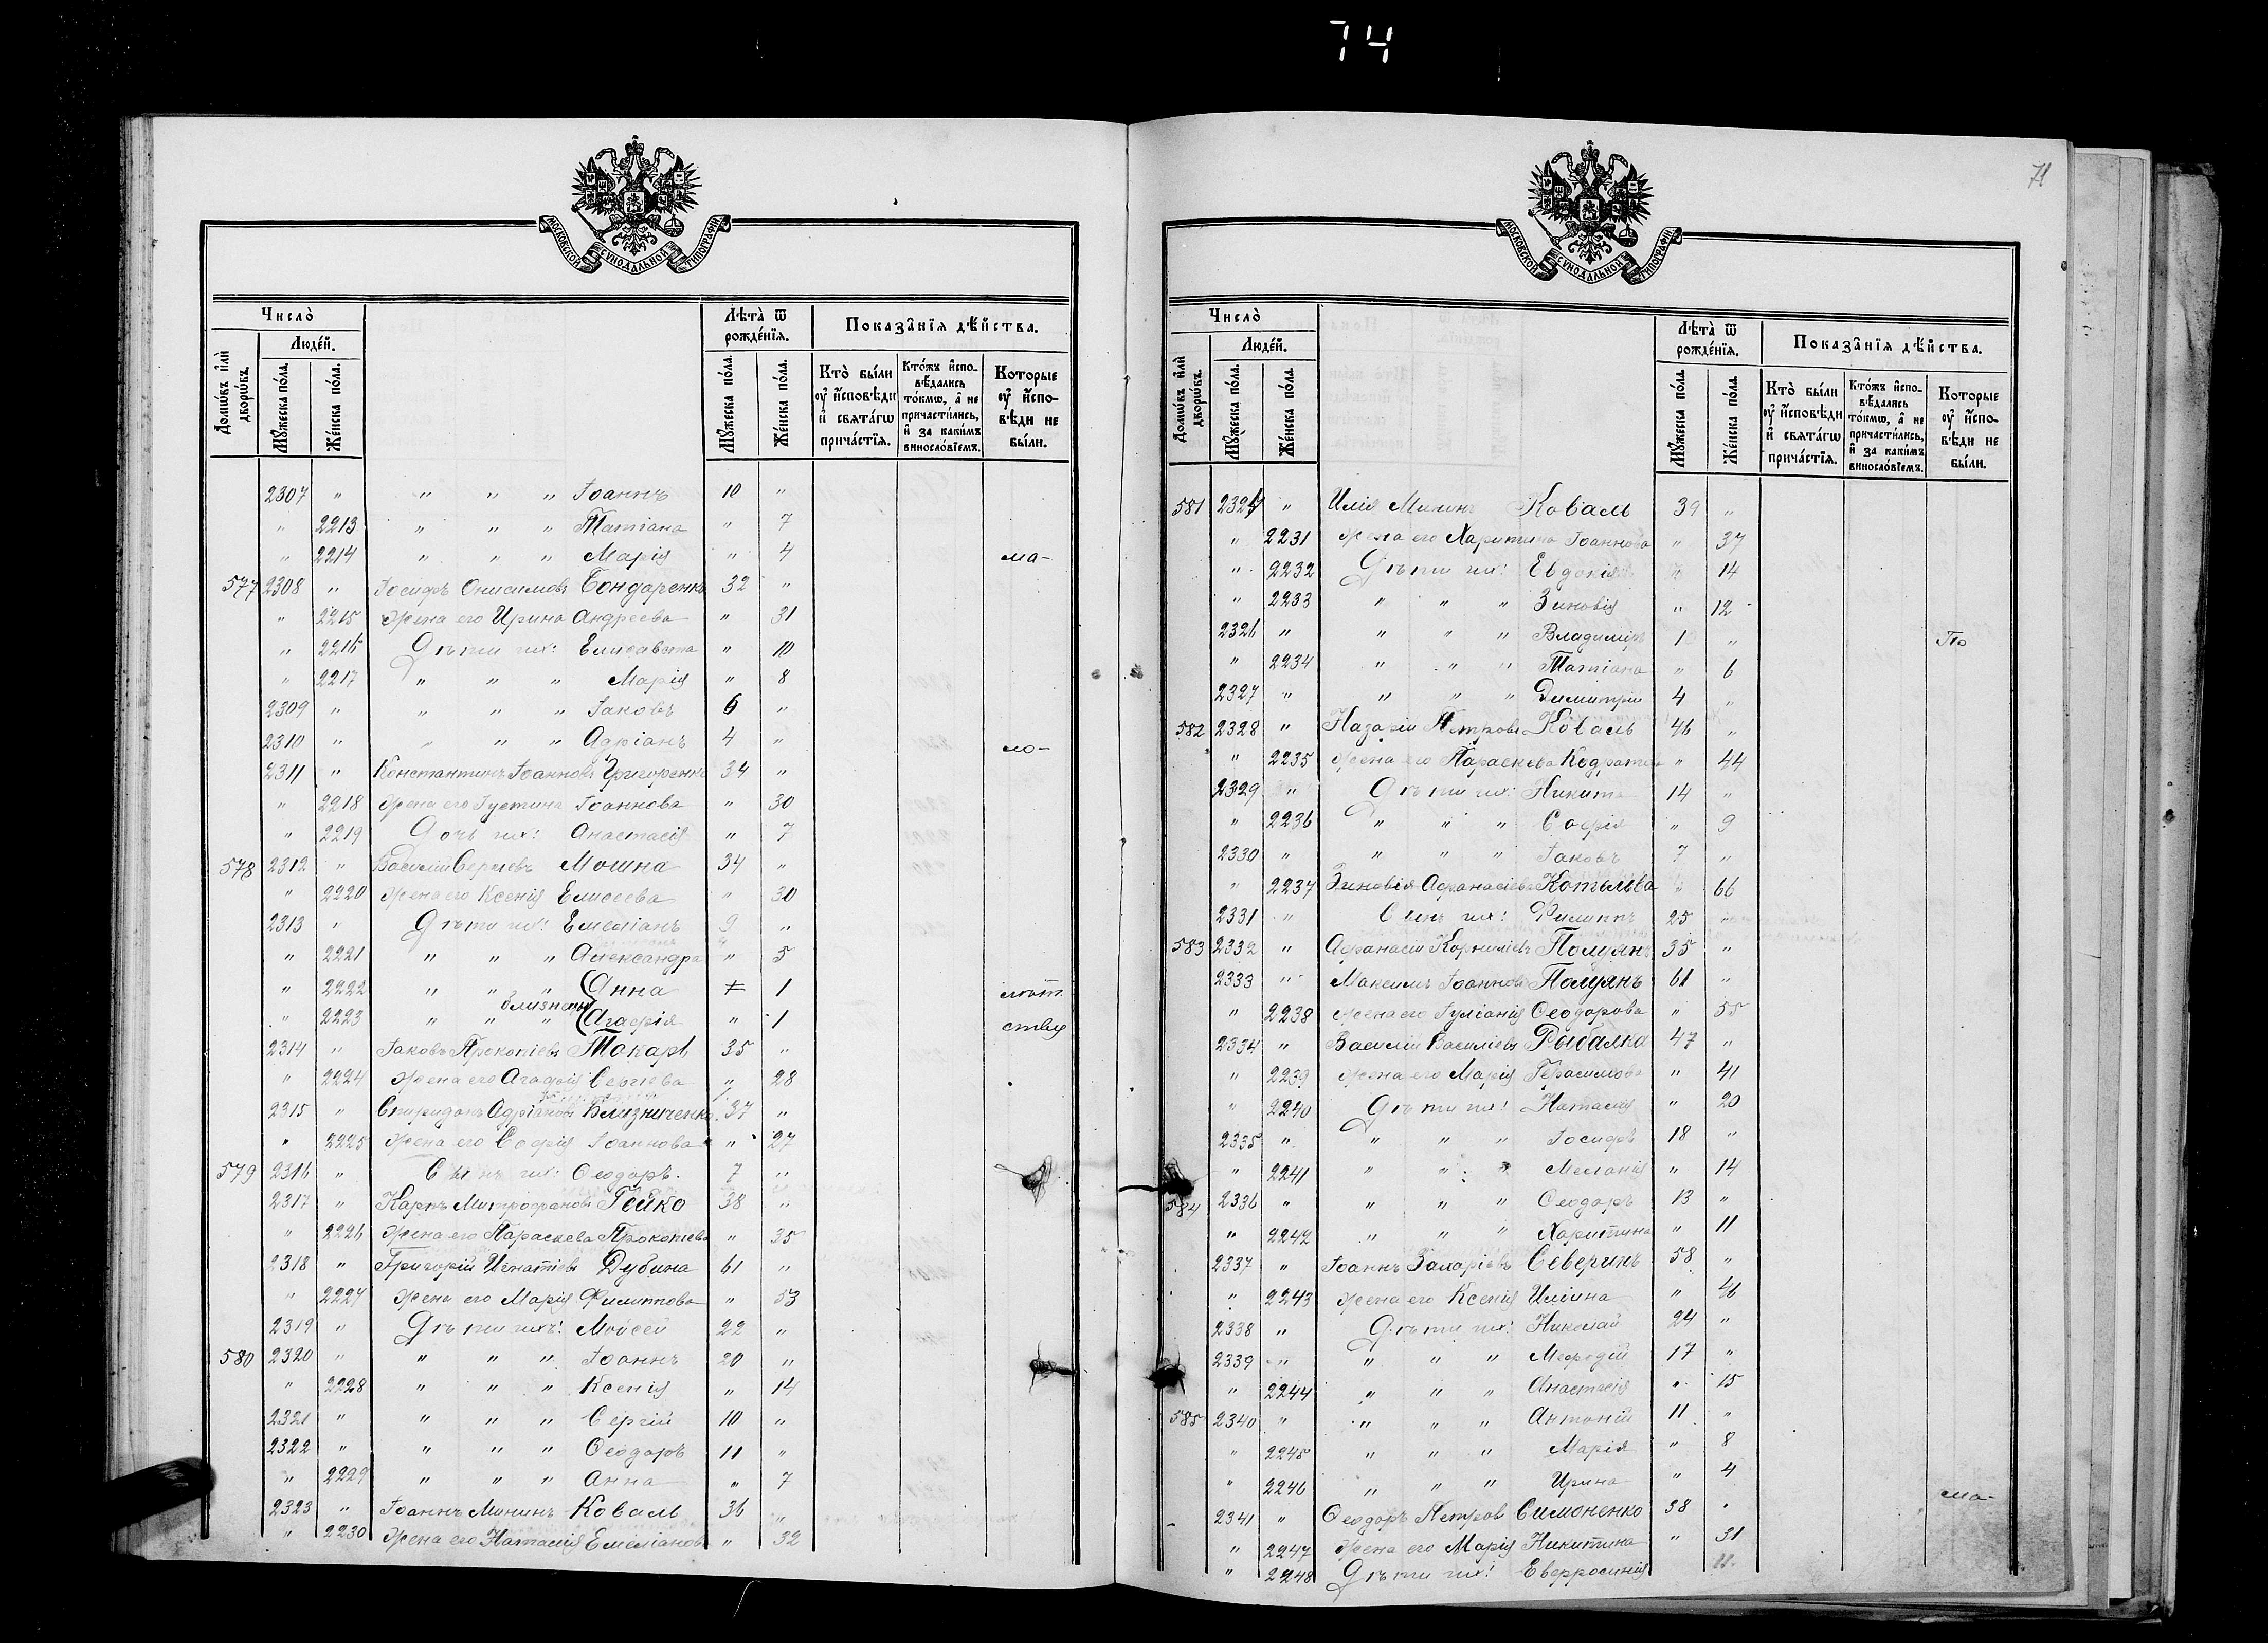 74
МОСКОВСКОЙ СѴНОДАЛЬНОЙ ТИПОГРАФІИ
Число̀
Людей.
Домѡвъ и҆лѝ дворѡвъ.
Мꙋжеска по́ла.
Же́нска по́ла.
Лѣта̀ ѿ рожде́нїѧ.
Мꙋжеска по́ла.
Же́нска по́ла.
Показа̂нїѧ дѣ́йства.
Кто̀ бы́ли ᲂу҆ и҆сповѣди и҆ свѧта́гѡ прича́стїѧ.
Кто́жъ и҆спо-вѣ́дались то́кмѡ, а҆ не причасти́лись, и҆ за каки́мъ винослові́емъ.
Которые ᲂу҆ и҆спо-вѣди не бы́ли.
2307 " " " " Іоаннъ 10 "
" 2213 " " " Татіана " 7
" 2214 " " " Марія " 4 ма-
577 2308 " Іосифъ Онисимовъ Бондаренко 32 "
" 2215 Жена его Ирина Андреева " 31
" 2216 Дѣти ихъ: Елисавета " 10
" 2217 " " " Марія " 8
2309 " " " " Іаковъ 6 "
2310 " " " " Адріанъ 4 " ло-
2311 " Константинъ Іоанновъ Григоренко 34 "
" 2218 Жена его Іустина Іоаннова " 30
" 2219 Дочь ихъ: Анастасія " 7
578 2312 " Василій Сергіевъ Мошна 34 "
" 2220 Жена его Ксенія Елисеева " 30
2313 " Дѣти ихъ: Емеліанъ 9 "
" 2221 " " " Александра " 5
" 2222 " " " Анна 1 лѣт
близнецы
" 2223 " " " Агафія " 1 ствѣ
2314 " Іаковъ Прокопіевъ Токарь 35 "
" 2224 Жена его Агафія Сергіева " 28
2315 " Спиридонъ Адріановъ Близниченко 37 "
" 2225 Жена его Софія Іоаннова " 27
579 2316 " Сынъ ихъ: Ѳеодоръ. 7 "
2317 " Карпъ Митрофановъ Гейко 38 "
" 2226 Жена его Параскева Прокопіева " 35
2318 " Григорій Игнатіевъ Дубина 61 "
" 2227 Жена его Марія Филиппова " 53
2319 " Дѣти ихъ: Моисей 22 "
580 2320 " " " " Іоаннъ 20 "
" 2228 " " " Ксенія " 14
2321 " " " " Сергій 10 "
2322 " " " " Ѳеодоръ 11 "
" 2229 " " " Анна " 7
2323 " Іоаннъ Мининъ Коваль 36 "
" 2230 Жена его Наталія Емеліанова " 32
71
МОСКОВСКОЙ СѴНОДАЛЬНОЙ ТИПОГРАФІИ
Число̀
Людей.
Домѡвъ и҆лѝ дворѡвъ.
Мꙋжеска по́ла.
Же́нска по́ла.
Лѣта̀ ѿ рожде́нїѧ.
Мꙋжеска по́ла.
Же́нска по́ла.
Показа̂нїѧ дѣ́йства.
Кто̀ бы́ли ᲂу҆ и҆сповѣди и҆ свѧта́гѡ прича́стїѧ.
Кто́жъ и҆спо-вѣ́дались то́кмѡ, а҆ не причасти́лись, и҆ за каки́мъ винослові́емъ.
Которые ᲂу҆ и҆спо-вѣди не бы́ли.
581 2324 " Илія Мининъ Коваль 39 "
" 2231 Жена его Харитина Іоаннова " 37
" 2232 Дѣти ихъ: Евдокія " 14
" 2233 " " " Зиновія " 12
2326 " " " " Владиміръ 1 " По
" 2234 " " " Татіана " 6
2327 " " " " Димитрій 4 "
582 2328 " Назарій Петровъ Коваль 46 "
" 2235 Жена его Параскева Кодратова " 44
2329 " Дѣти ихъ: Никита 14 "
" 2236 " " " Софія " 9
2330 " " " " Іаковъ 7 "
" 2237 Зиновія Афанасіева Копылова " 66
2331 " Сынъ ихъ: Филиппъ 25 "
583 2332 " Афанасій Корниліевъ Полуянъ 35 "
2333 " Максимъ Іоанновъ Полуянъ 61 "
" 2238 Жена его Іуліанія Ѳеодорова " 55
2334 " Василій Василіевъ Рыбалка 47 "
" 2239 Жена его Марія Герасимова " 41
" 2240 Дѣти ихъ: Наталія " 20
2335 " " " " Іосифъ 18 "
" 2241 " " " Меланія " 14
584 2336 " " " " Ѳеодоръ 13 "
" 2242 " " " Харитина " 11
2337 " Іоаннъ Захаріевъ Северинъ 58 "
" 2243 Жена его Ксенія Иліина " 46
2338 " Дѣти ихъ: Николай 24 "
2339 " " " " Мефодій 17 "
" 2244 " " " Анастасія " 15
585 2340 " " " " Антоній 11 "
" 2245 " " " Марія " 8
" 2246 " " " Ирина " 4 ма-
2341 " Ѳеодоръ Петров Симоненко 38 "
" 2247 Жена его Марія Никитина " 31
" 2248 Дѣти ихъ: Евфросинія 11